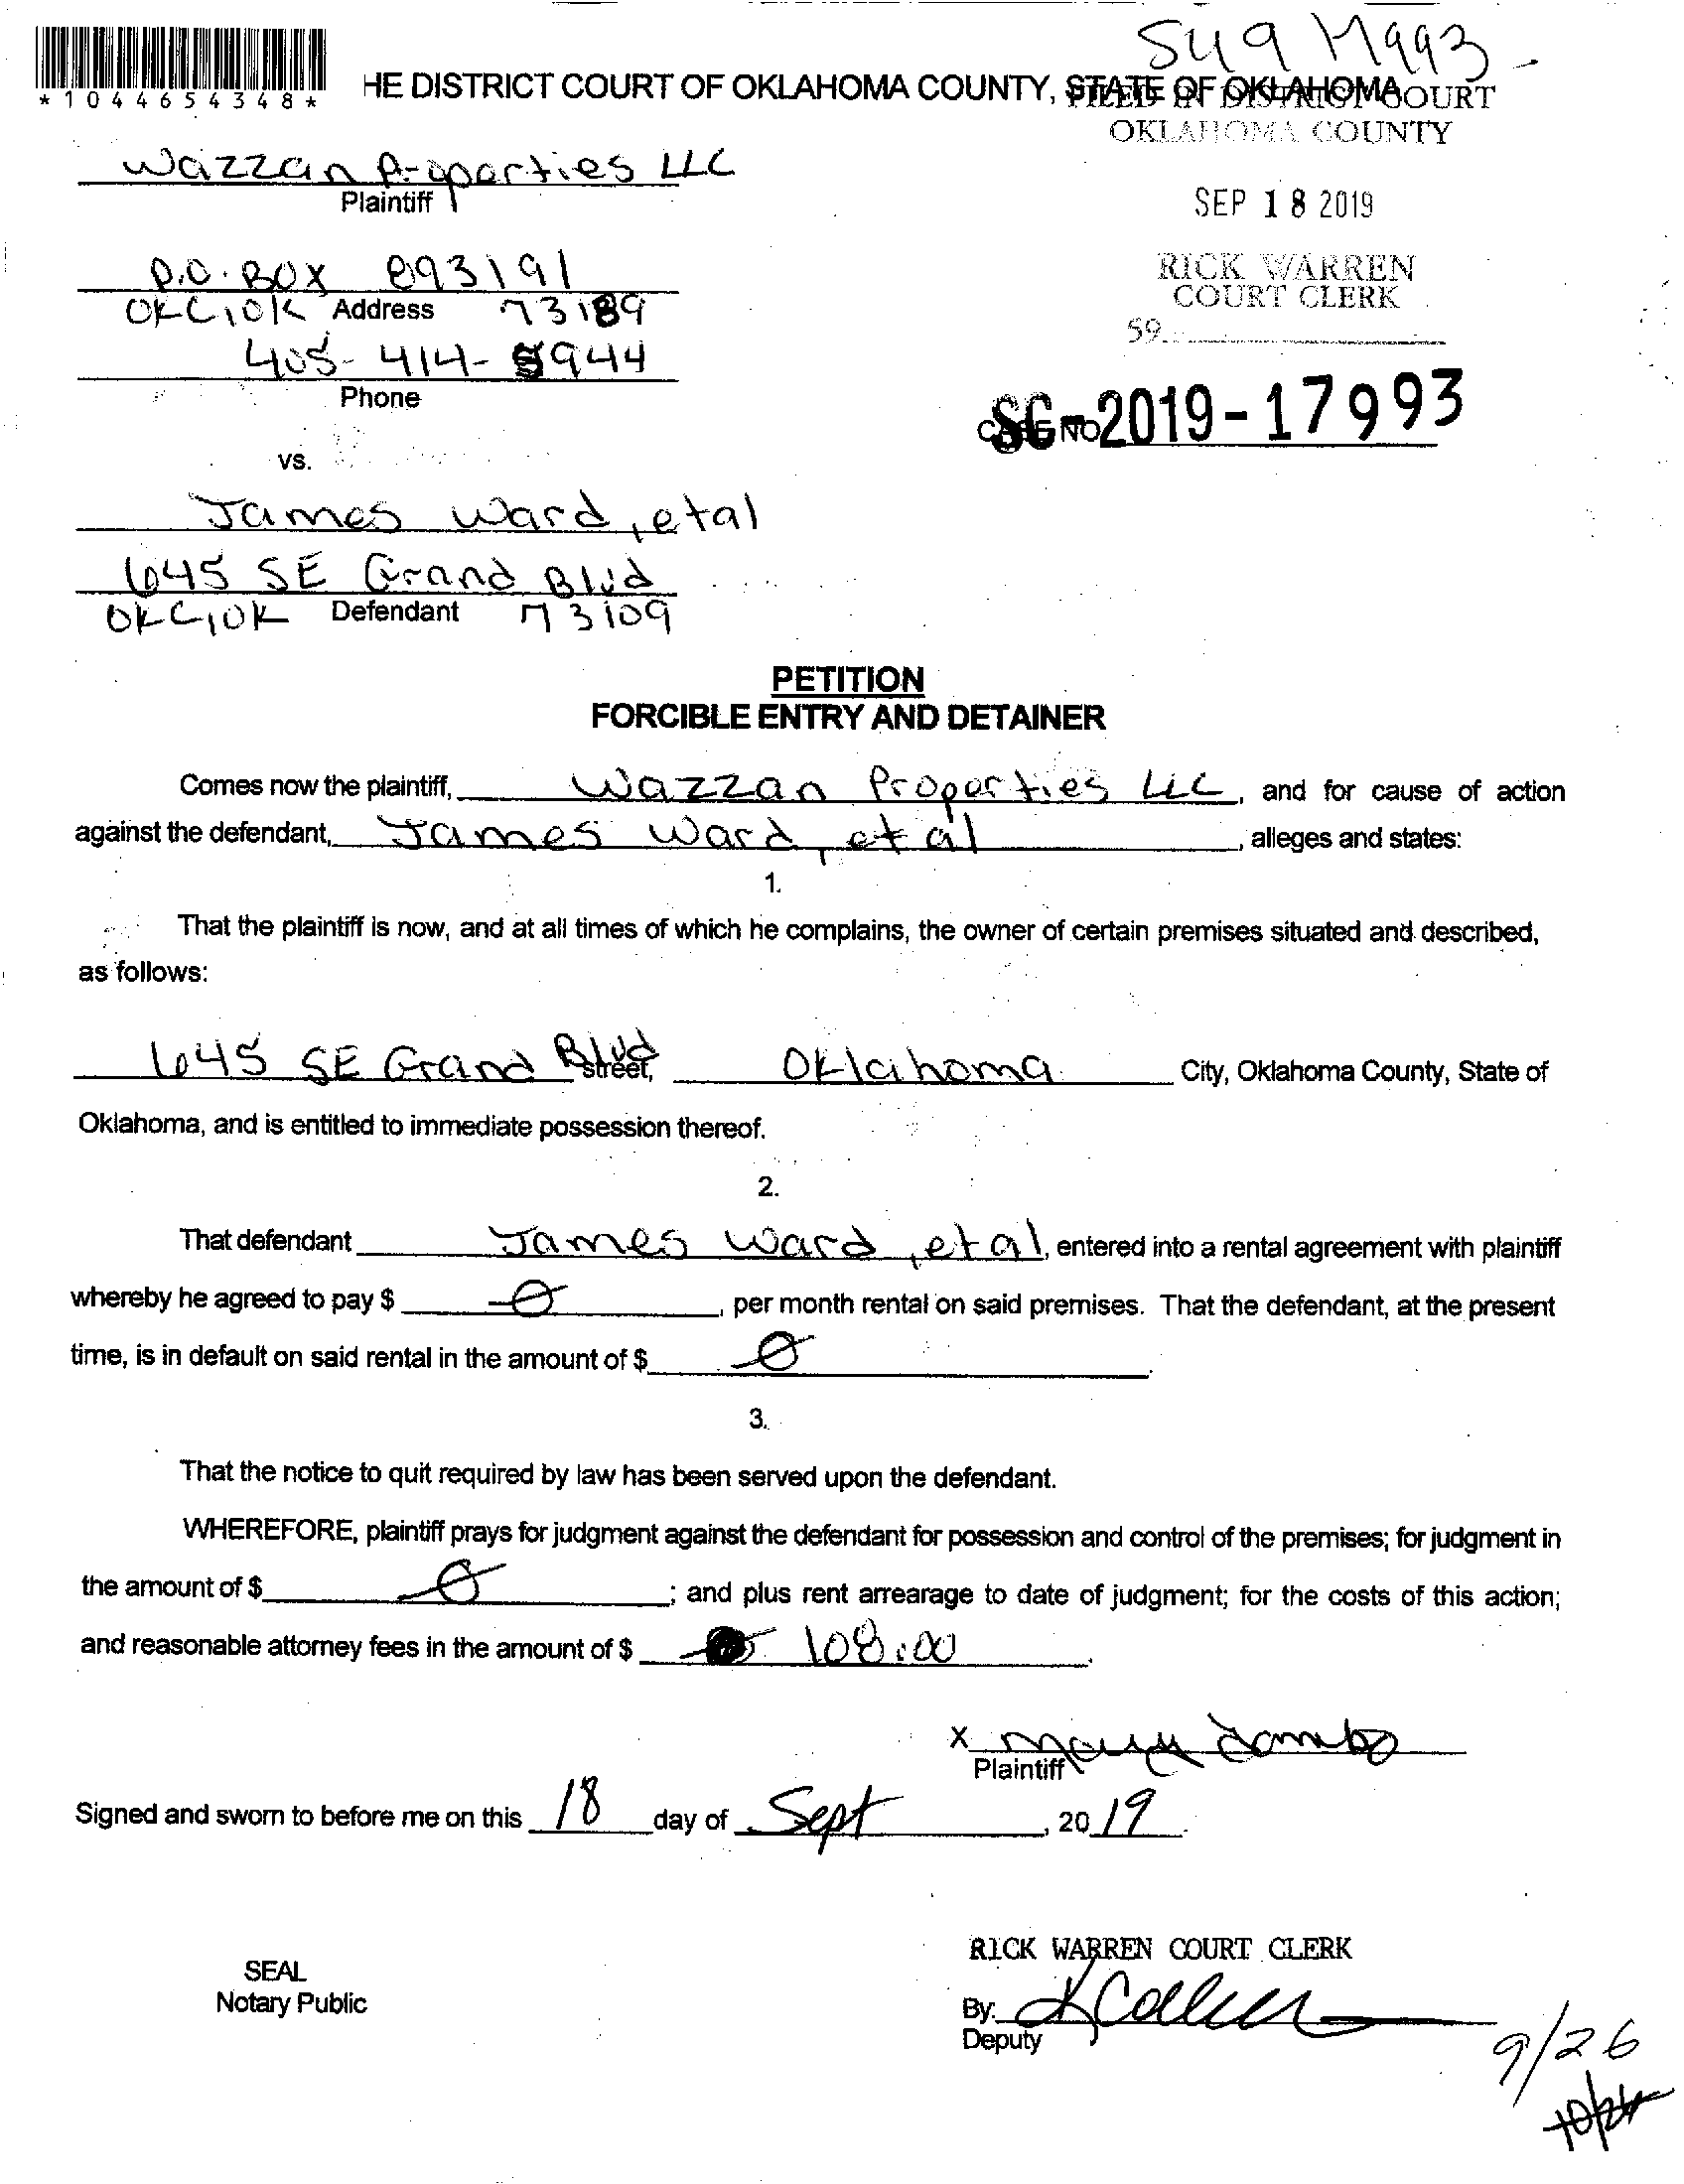 SC 19 17993 -
*1044654348*
HE DISTRICT COURT OF OKLAHOMA COUNTY, STATE OF OKLAHOMA
FILED IN DISTRICT COURT
OKLAHOMA COUNTY
Wazzan Properties LLC
Plaintiff
SEP 18 2019
P.O. BOX 893191
OKC, OK Address 73189
RICK WARREN
COURT CLERK
59
405-414-5944
Phone
CASE NO. SC-2019-17993
vs.
James Ward, et al
645 SE Grand Blvd
OKC, OK Defendant 73109
PETITION
FORCIBLE ENTRY AND DETAINER
Comes now the plaintiff, Wazzan Properties LLC, and for cause of action
against the defendant, James Ward, et al, alleges and states:
1.
That the plaintiff is now, and at all times of which he complains, the owner of certain premises situated and described,
as follows:
645 SE Grand Blvd street, Oklahoma City, Oklahoma County, State of
Oklahoma, and is entitled to immediate possession thereof.
2.
That defendant James Ward, et al, entered into a rental agreement with plaintiff
whereby he agreed to pay $ 0, per month rental on said premises. That the defendant, at the present
time, is in default on said rental in the amount of $ 0.
3.
That the notice to quit required by law has been served upon the defendant.
WHEREFORE, plaintiff prays for judgment against the defendant for possession and control of the premises; for judgment in
the amount of $ 0; and plus rent arrearage to date of judgment; for the costs of this action;
and reasonable attorney fees in the amount of $ 108.00.
X Mary
Plaintiff
Signed and sworn to before me on this 18 day of Sept, 2019.
RICK WARREN COURT CLERK
SEAL
Notary Public
By:
Deputy
9/26
10/24